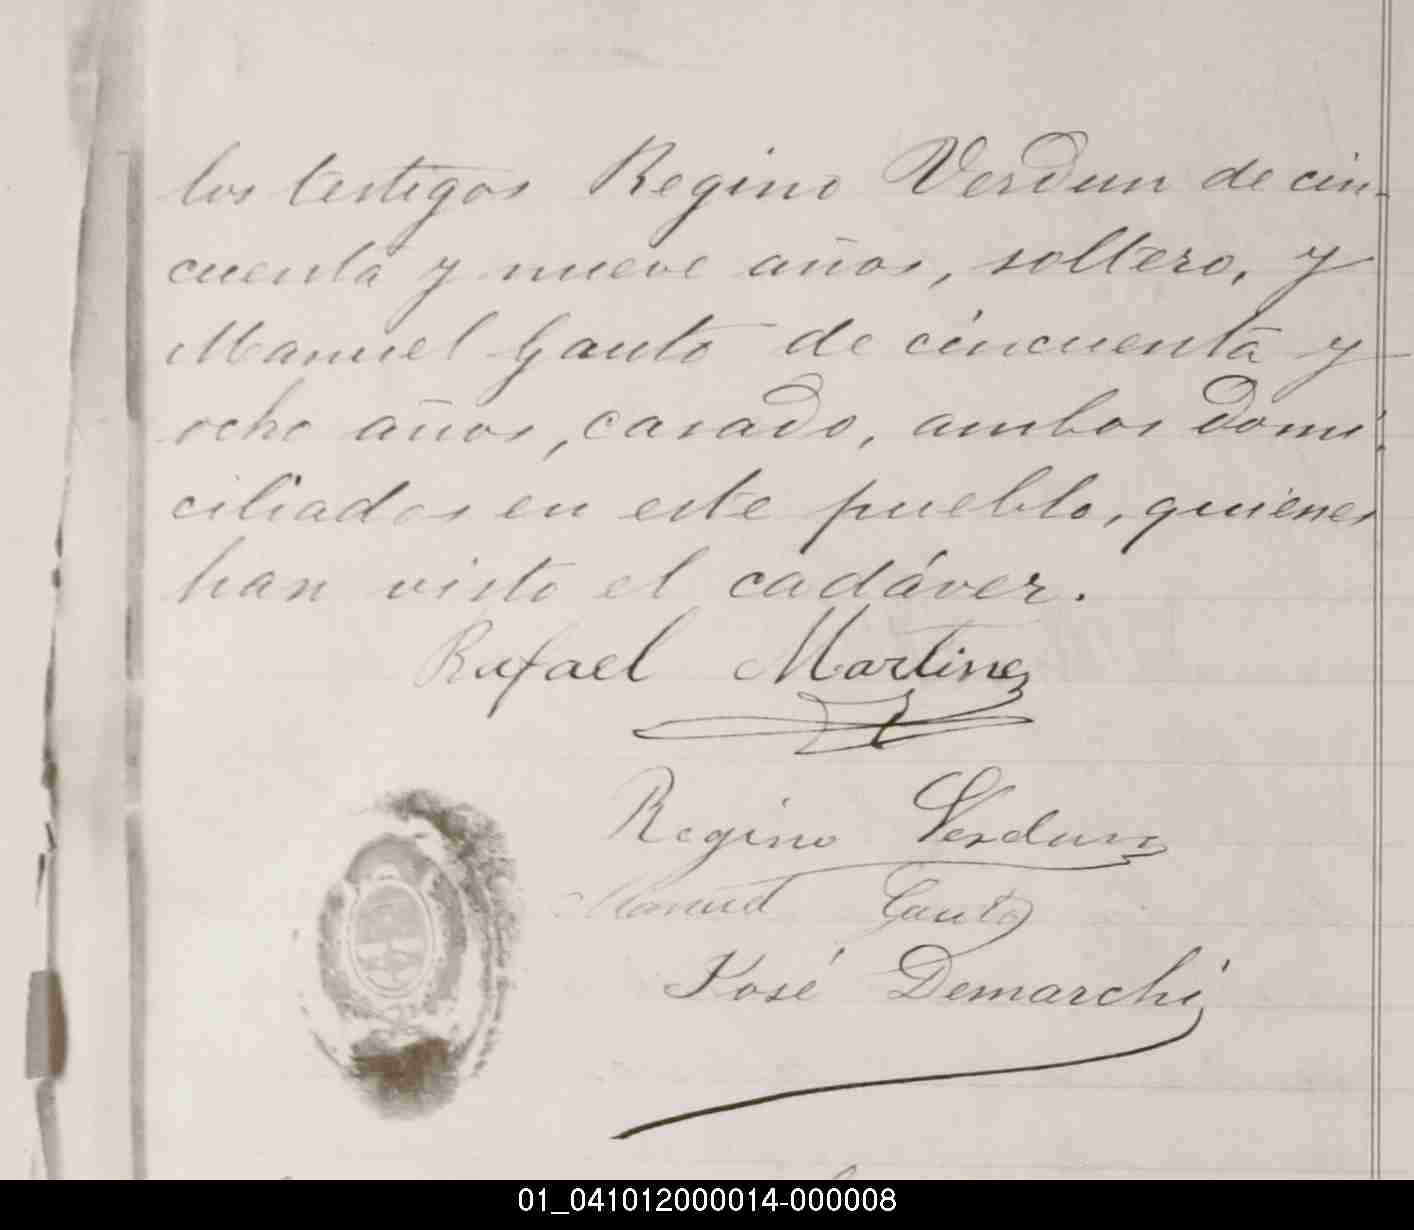 los testigos Regino Verdun de cin-
cuenta y nueve años, soltero, y
Manuel Gauto de cincuenta y
ocho años, casado, ambos domi-
ciliados en este pueblo, quienes
han visto el cadáver.
Rafael Martinez
Regino Verdun
Manuel Gauto
José Demarchi
01_041012000014-000008